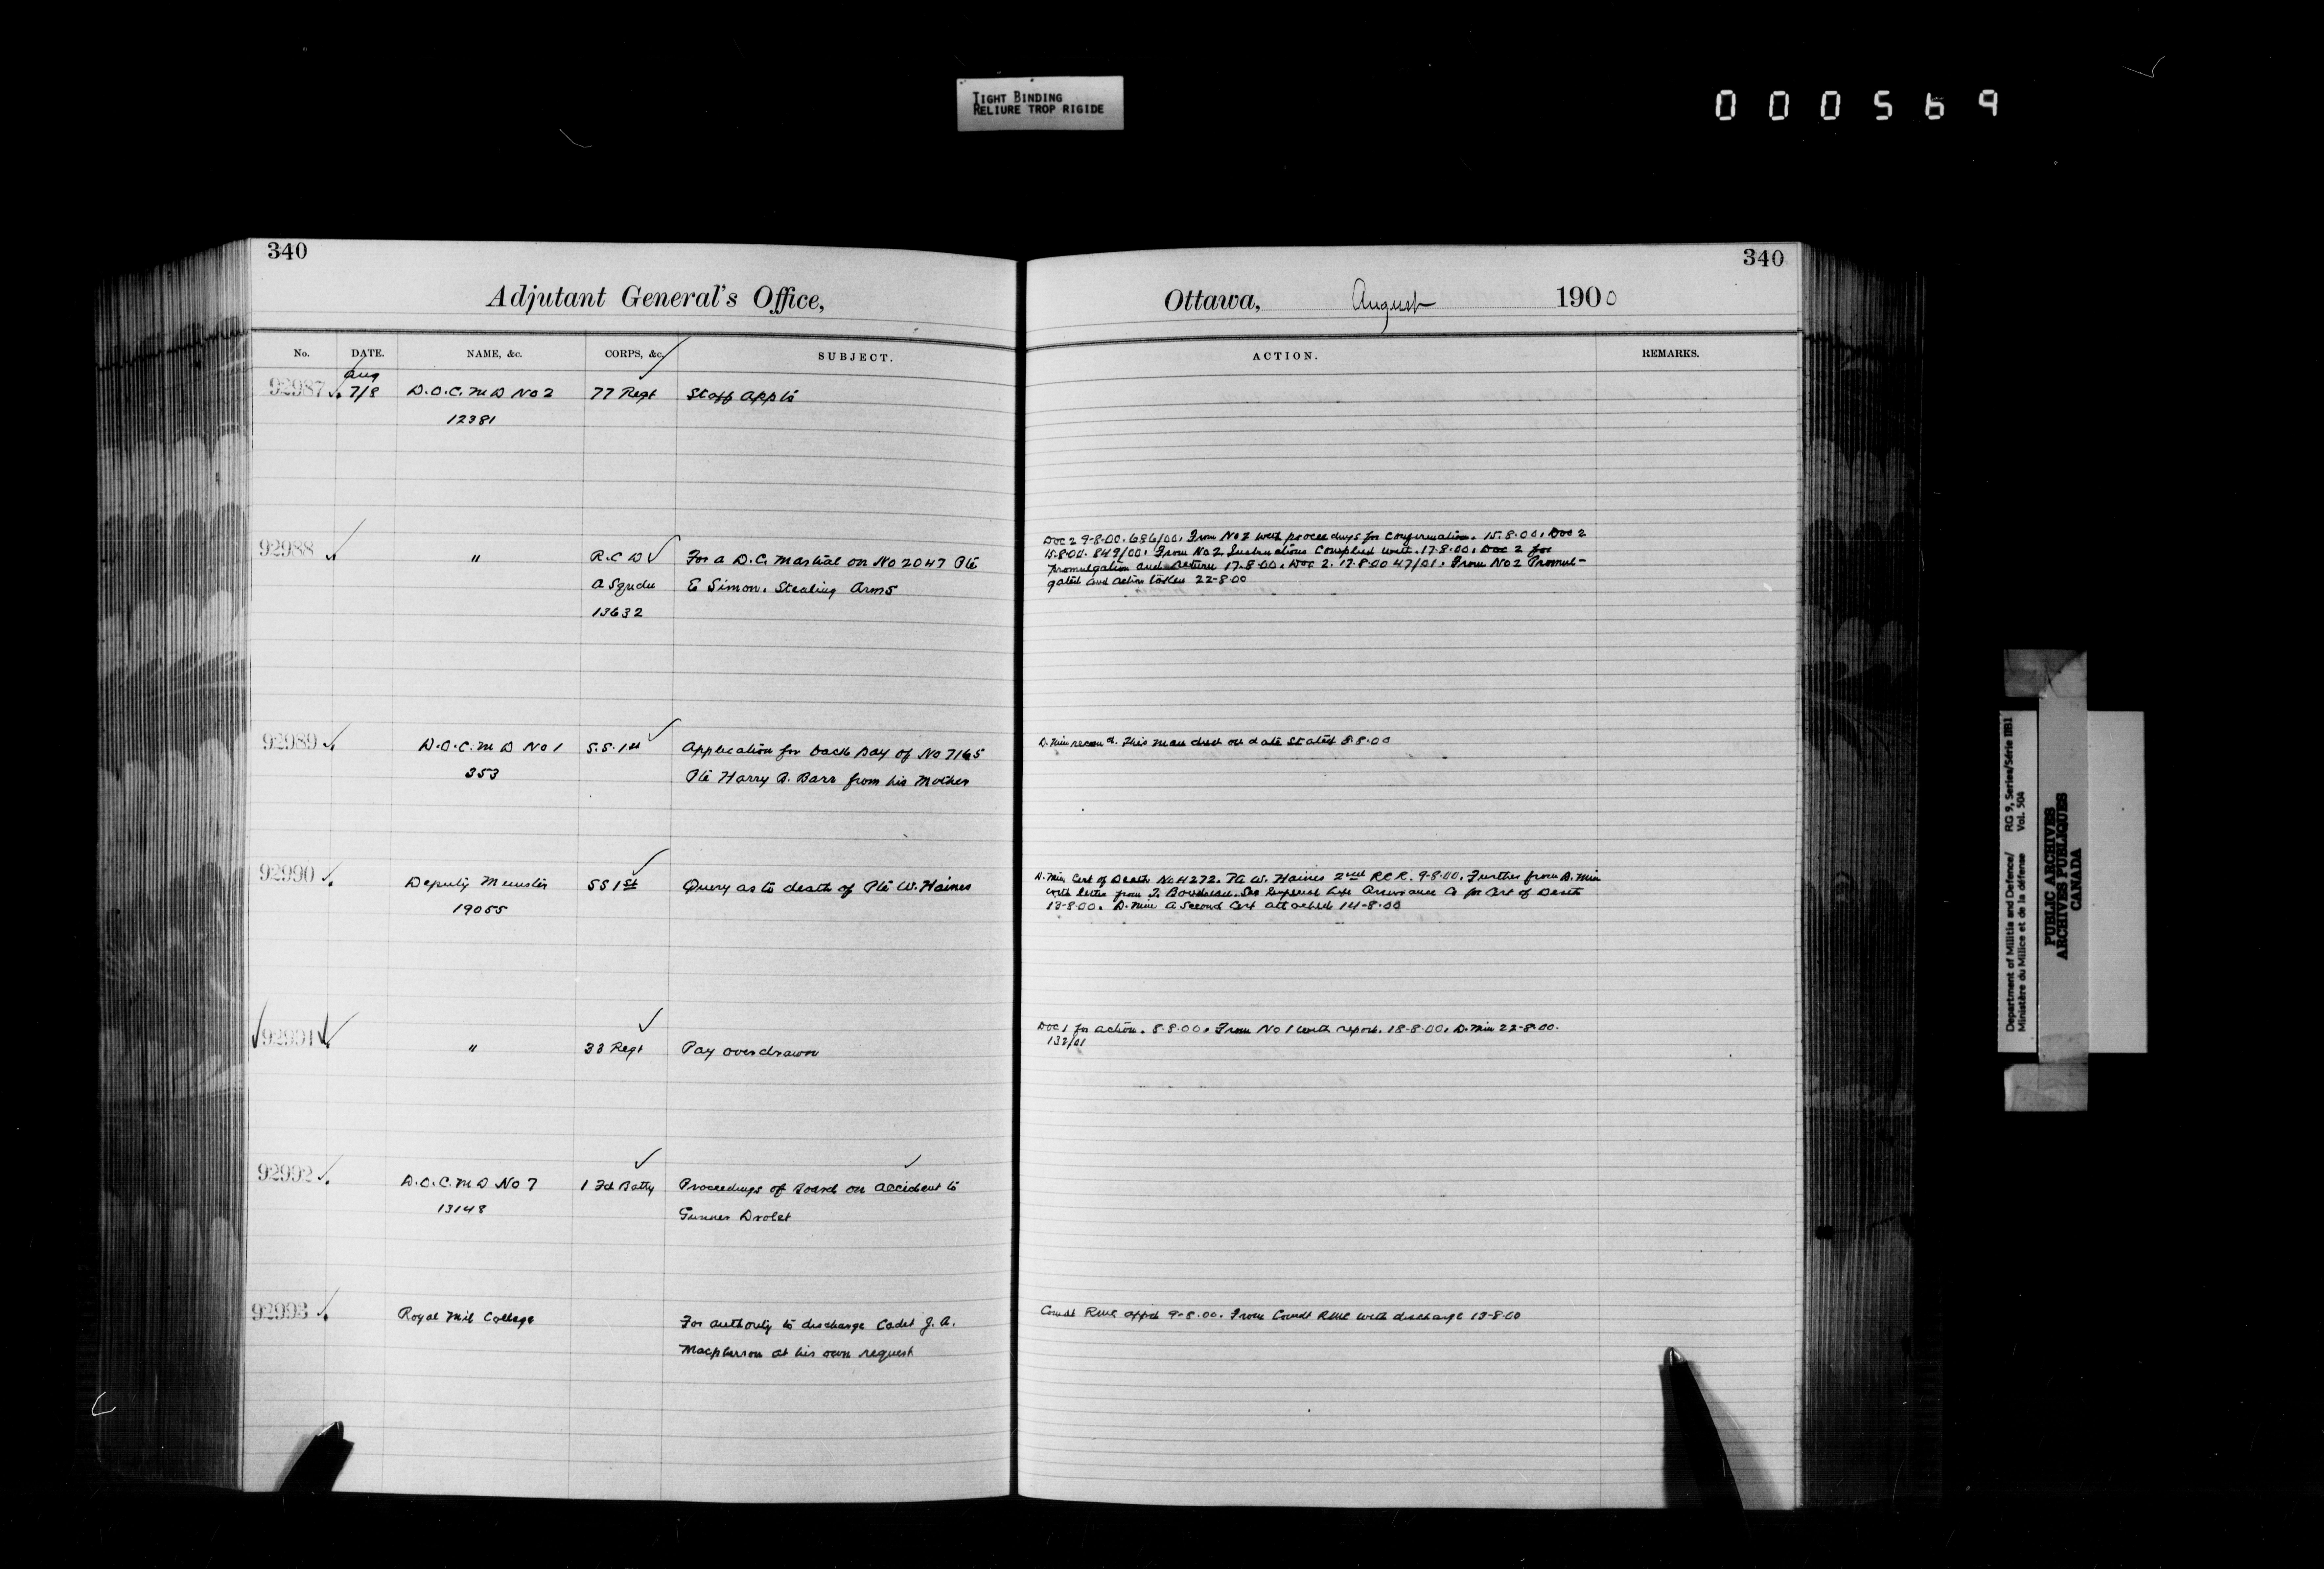 TIGHT BINDING
RELIURE TROP RIGIDE
000569
340
Adjutant General's Office,
No. DATE. NAME, &c. CORPS, &c. SUBJECT.
Aug
92987 7/8 D.O.C. M D No 2 77 Regt Staff Appts
12381
92988 " R.C D For a D.C. Martial on No 2047 Pte
A Sqdn E Simon. Stealing Arms
13632
92989 D.O.C. M D No 1 S.S. 1st Application for back Pay of No 7165
353 Pte Harry A. Barr from his Mother
92990 Deputy Minister SS 1st Query as to death of Pte W. Haines
19055
92991 " 33 Regt Pay overdrawn
92992 D.O.C. M D No 7 1 Fd Batty Proceedings of Board on accident to
13148 Gunner Drolet
92993 Royal Mil College For authority to discharge Cadet J. A.
Macpherson at his own request
340
Ottawa, August 1900
ACTION. REMARKS.
Doc 2 9-8-00. 686/00. From No 2 with proceedings for confirmation. 15.8.00. Doc 2
15.8.00. 849/00. From No 2 Instructions Complied with. 17.8.00. Doc 2 for
promulgation and return 17-8-00. Doc 2. 17.8.00 47/01. From No 2 Promul-
gated and action taken 22-8-00
D. Min. This man died on date stated 8.8.00
D. Min Cert of Death No 4272. Pte W. Haines 2nd RCR. 9-8-00. Further from D. Min
with letter from Imperial Life Assurance Co for Cert of Death
13-8-00. D. Min A Second Cert attached 14-8-00
Doc 1 for action. 8-8-00. From No 1 with report. 18-8-00. D. Min 22-8-00.
132/01
Comdt RMC appd 9-8-00. From Comdt RMC with discharge 13-8-00
Department of Militia and Defence/ RG 9, Series/Série IIB1
Ministère du Milice et de la défense Vol. 504
PUBLIC ARCHIVES
ARCHIVES PUBLIQUES
CANADA